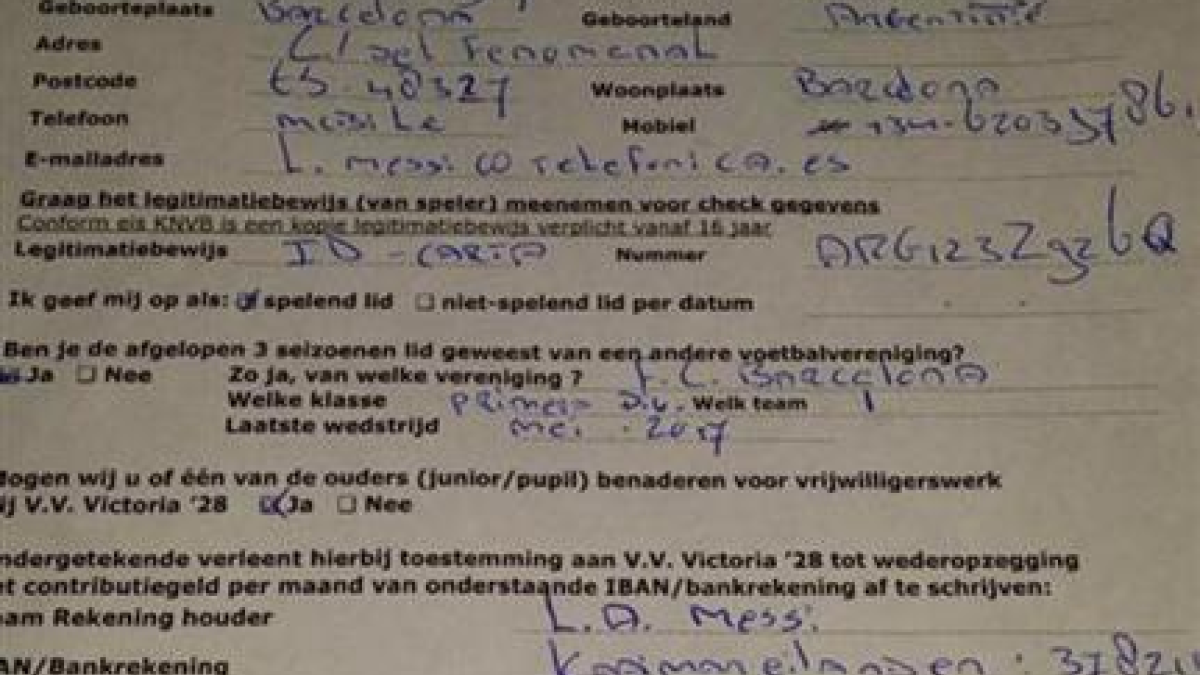 Geboorteplaats Barcelona Geboorteland Argentinië
Adres C/ del Fenomenal
Postcode ES-48327 Woonplaats Barcelona
Telefoon Mobiel +34-62033786
E-mailadres L.messi@telefonica.es
Graag het legitimatiebewijs (van speler) meenemen voor check gegevens
Conform eis KNVB is een kopie legitimatiebewijs verplicht vanaf 16 jaar
Legitimatiebewijs ID-CARTA Nummer ARG123Z926Q
Ik geef mij op als: spelend lid niet-spelend lid per datum
Ben je de afgelopen 3 seizoenen lid geweest van een andere voetbalvereniging?
Ja Nee Zo ja, van welke vereniging ? F.C. Barcelona
Welke klasse Primera Div. Welk team 1
Laatste wedstrijd mei 2017
Mogen wij u of één van de ouders (junior/pupil) benaderen voor vrijwilligerswerk
ij V.V. Victoria '28 Ja Nee
ndergetekende verleent hierbij toestemming aan V.V. Victoria '28 tot wederopzegging
et contributiegeld per maand van onderstaande IBAN/bankrekening af te schrijven:
aam Rekening houder L.A. Messi
AN/Bankrekening Kaaimaneilanden : 37821